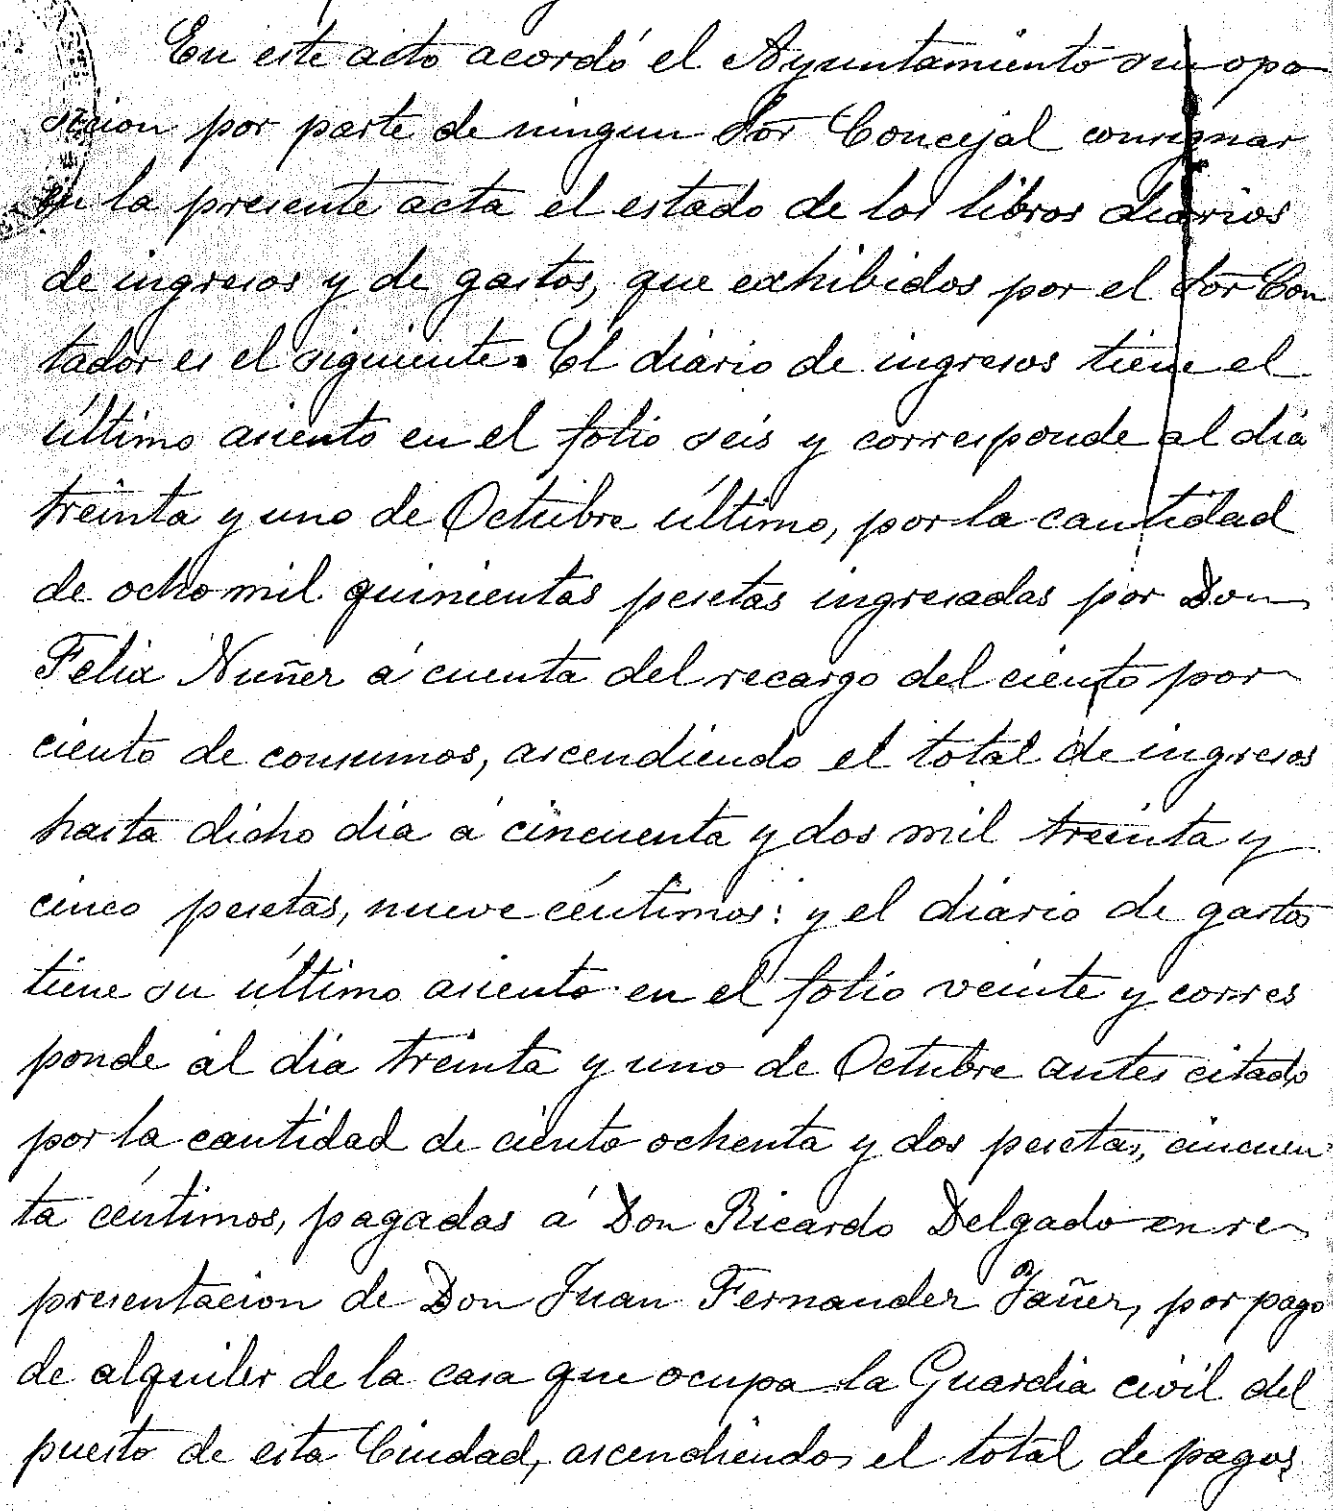 En este acto acordó el Ayuntamiento sin opo
sicion por parte de ningun Sor Concejal consignar
en la presente acta el estado de los libros diarios
de ingresos y de gastos, que exhibidos por el Sor Con
tador es el siguiente. El diario de ingresos tiene el
último asiento en el folio seis y corresponde al dia
treinta y uno de Octubre último, por la cantidad
de ocho mil quinientas pesetas ingresadas por Don
Felix Nuñez á cuenta del recargo del ciento por
ciento de consumos, ascendiendo el total de ingresos
hasta dicho dia á cincuenta y dos mil treinta y
cinco pesetas, nueve céntimos: y el diario de gastos
tiene su último asiento en el folio veinte y corres
ponde al dia treinta y uno de Octubre antes citado
por la cantidad de ciento ochenta y dos pesetas, cincuen
ta céntimos, pagadas á Don Ricardo Delgado en re
presentacion de Don Juan Fernandez Yañez, por pago
de alquiler de la casa que ocupa la Guardia civil del
puesto de esta Ciudad, ascendiendo el total de pagos